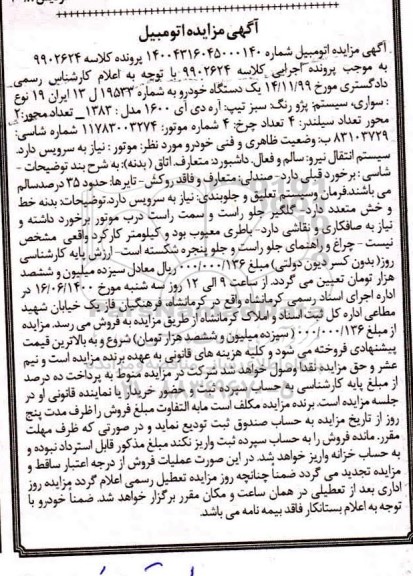 آگهی مزایده اتومبیل
آگهی مزایده اتومبیل شماره ۱۴۰۰۴۳۱۶۰۴۵۰۰۰۱۴۰ پرونده کلاسه ۹۹۰۲۶۲۴
به موجب پرونده اجرایی کلاسه ۹۹۰۲۶۲۴ با توجه به اعلام کارشناس رسمی
دادگستری مورخ ۱۴/۱۱/۹۹ یک دستگاه خودرو به شماره ۱۹۵۳۳ ل ۱۳ ایران ۱۹ نوع
: سواری، سیستم: پژو رنگ: سبز تیپ: آر دی آی ۱۶۰۰ مدل : ۱۳۸۳_ تعداد محور: ۲
محور تعداد سیلندر: ۴ تعداد چرخ: ۴ شماره موتور: ۱۱۷۸۳۰۰۳۲۷۴ شماره شاسی:
۸۳۱۰۳۷۲۹ ب: وضعیت ظاهری و فنی خودرو مورد نظر: موتور : نیاز به سرویس دارد.
سیستم انتقال نیرو: سالم و فعال. داشبورد: متعارف. اتاق ( بدنه): به شرح بند توضیحات -
شاسی : برخورد قبلی دارد- صندلی: متعارف و فاقد روکش - تایرها: حدود ۳۵ درصد سالم
می باشند. فرمان و سیستم تعلیق و جلوبندی: نیاز به سرویس دارد. توضیحات: بدنه خط
و خش متعدد دارد. گلگیر جلو راست و سمت راست درب موتور برخورد داشته و
نیاز به صافکاری و نقاشی دارد- باطری معیوب بود و کیلومتر کارکرد واقعی مشخص
نیست - چراغ و راهنمای جلو راست و جلو پنجره شکسته است- ارزش پایه کارشناسی
روز (بدون کسر دیون دولتی) مبلغ ۱۳۶/۰۰۰/۰۰۰ ریال معادل سیزده میلیون و ششصد
هزار تومان تعیین می گردد. از ساعت ۹ الی ۱۲ روز سه شنبه مورخ ۱۶/۰۶/۱۴۰۰ در
اداره اجرای اسناد رسمی کرمانشاه واقع در کرمانشاه، فرهنگیان فاز یک خیابان شهید
مطاعی اداره کل ثبت اسناد و املاک کرمانشاه از طریق مزایده به فروش می رسد. مزایده
از مبلغ ۱۳۶/۰۰۰/۰۰۰ (سیزده میلیون و ششصد هزار تومان) شروع و به بالاترین قیمت
پیشنهادی فروخته می شود و کلیه هزینه های قانونی به عهده برنده مزایده است و نیم
عشر و حق مزایده نقداً وصول خواهد شد. شرکت در مزایده منوط به پرداخت ده درصد
از مبلغ پایه کارشناسی به حساب سپرده ثبت و حضور خریدار یا نماینده قانونی او در
جلسه مزایده است. برنده مزایده مکلف است مابه التفاوت مبلغ فروش را ظرف مدت پنج
روز از تاریخ مزایده به حساب صندوق ثبت تودیع نماید و در صورتی که ظرف مهلت
مقرر، مانده فروش را به حساب سپرده ثبت واریز نکند مبلغ مذکور قابل استرداد نبوده و
به حساب خزانه واریز خواهد شد. در این صورت عملیات فروش از درجه اعتبار ساقط و
مزایده تجدید می گردد ضمناً چنانچه روز مزایده تعطیل رسمی اعلام گردد مزایده روز
اداری بعد از تعطیلی در همان ساعت و مکان مقرر برگزار خواهد شد. ضمناً خودرو با
توجه به اعلام بستانکار فاقد بیمه نامه می باشد.